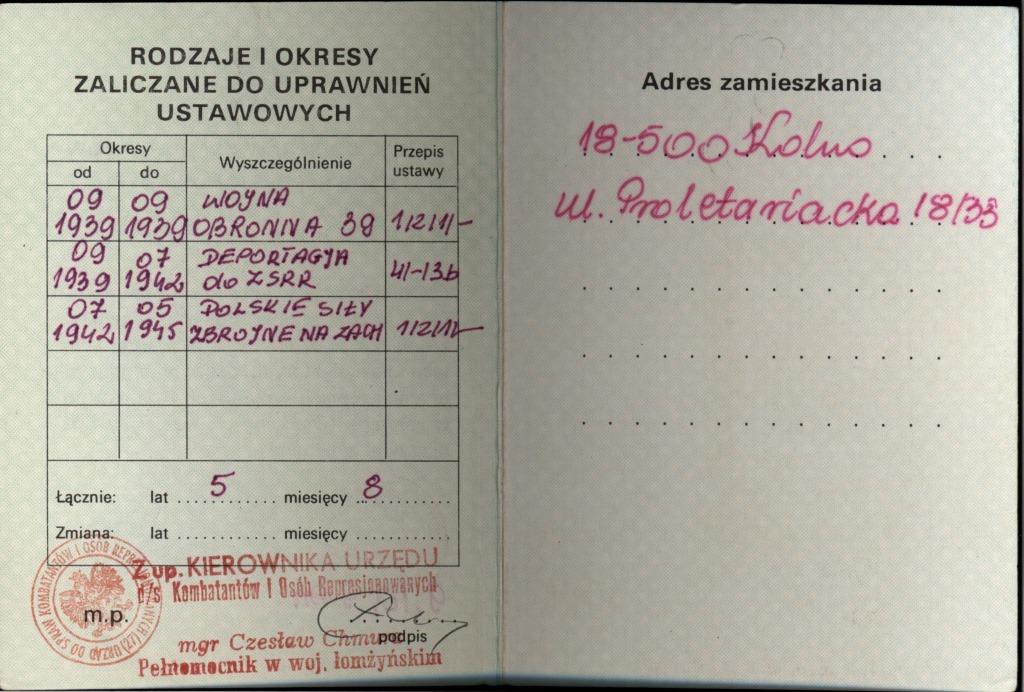 RODZAJE I OKRESY
ZALICZANE DO UPRAWNIEŃ
USTAWOWYCH
Okresy
od do
Wyszczególnienie
Przepis
ustawy
09 09 WOJNA
1939 1939 OBRONNA 39 1/2/1/-
09 07 DEPORTACJA
1939 1942 do ZSRR 4/-13b
07 05 POLSKIE SIŁY
1942 1945 ZBROJNE NA ZACH 1/2/1/-
Łącznie: lat 5 miesięcy 8
Zmiana: lat miesięcy
Z up. KIEROWNIKA URZĘDU
d/s Kombatantów i Osób Represjonowanych
m.p.
mgr Czesław
podpis
Pełnomocnik w woj. łomżyńskim
URZĄD DO SPRAW KOMBATANTÓW I OSÓB REPRESJONOWANYCH
Adres zamieszkania
18-500 Kolno
ul. Proletariacka 18/33